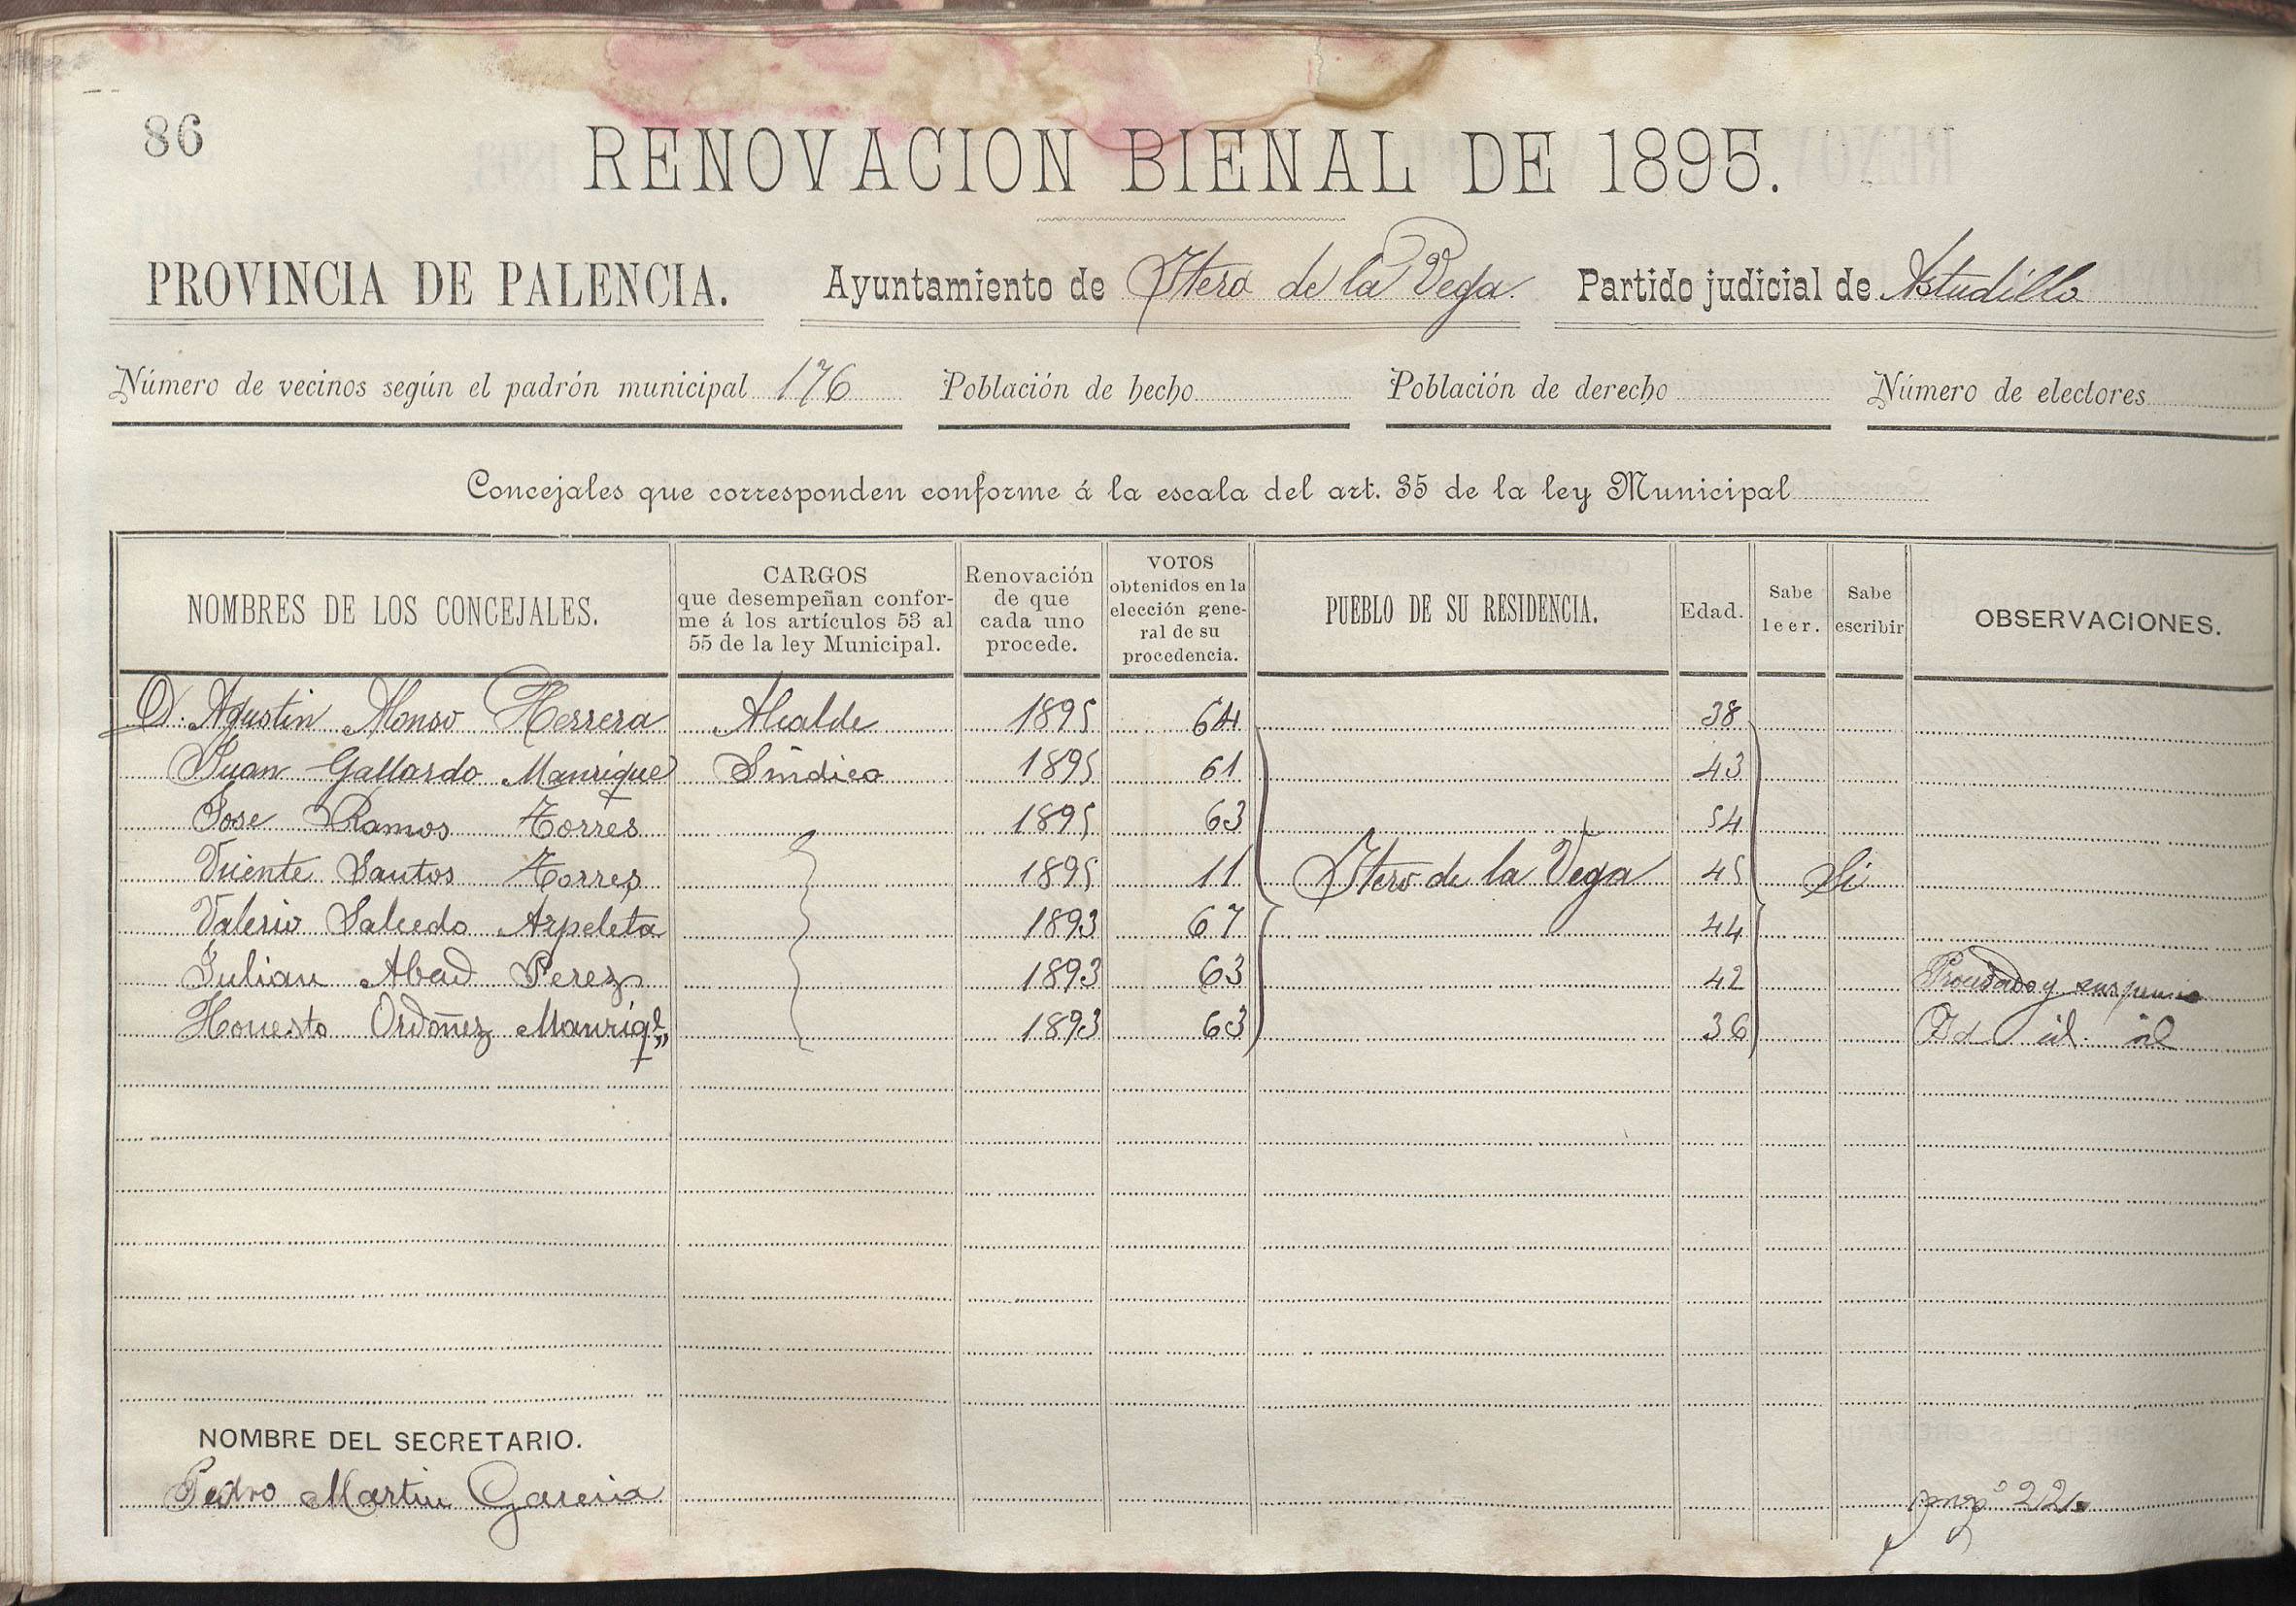 86
RENOVACION BIENAL DE 1895.
PROVINCIA DE PALENCIA. Ayuntamiento de Itero de la Vega. Partido judicial de Astudillo
Número de vecinos según el padrón municipal 176 Población de hecho Población de derecho Número de electores
Concejales que corresponden conforme á la escala del art. 35 de la ley Municipal
NOMBRES DE LOS CONCEJALES. CARGOS que desempeñan confor-me á los artículos 53 al 55 de la ley Municipal. Renovación de que cada uno procede. VOTOS obtenidos en la elección gene-ral de su procedencia. PUEBLO DE SU RESIDENCIA. Edad. Sabe leer. Sabe escribir OBSERVACIONES.
D. Agustin Alonso Herrera Alcalde 1895 64 38
Juan Gallardo Manrique Sindico 1895 61 43
Jose Ramos Torres 1895 63 54
Vicente Santos Torres 1895 11 Itero de la Vega 45 Si
Valerio Salcedo Arpeleta 1893 67 44
Julian Abad Perez 1893 63 42 Procesado y suspenso
Honesto Ordoñez Manriqe 1893 63 36 Id id. id
NOMBRE DEL SECRETARIO.
Pedro Martin Garcia 22